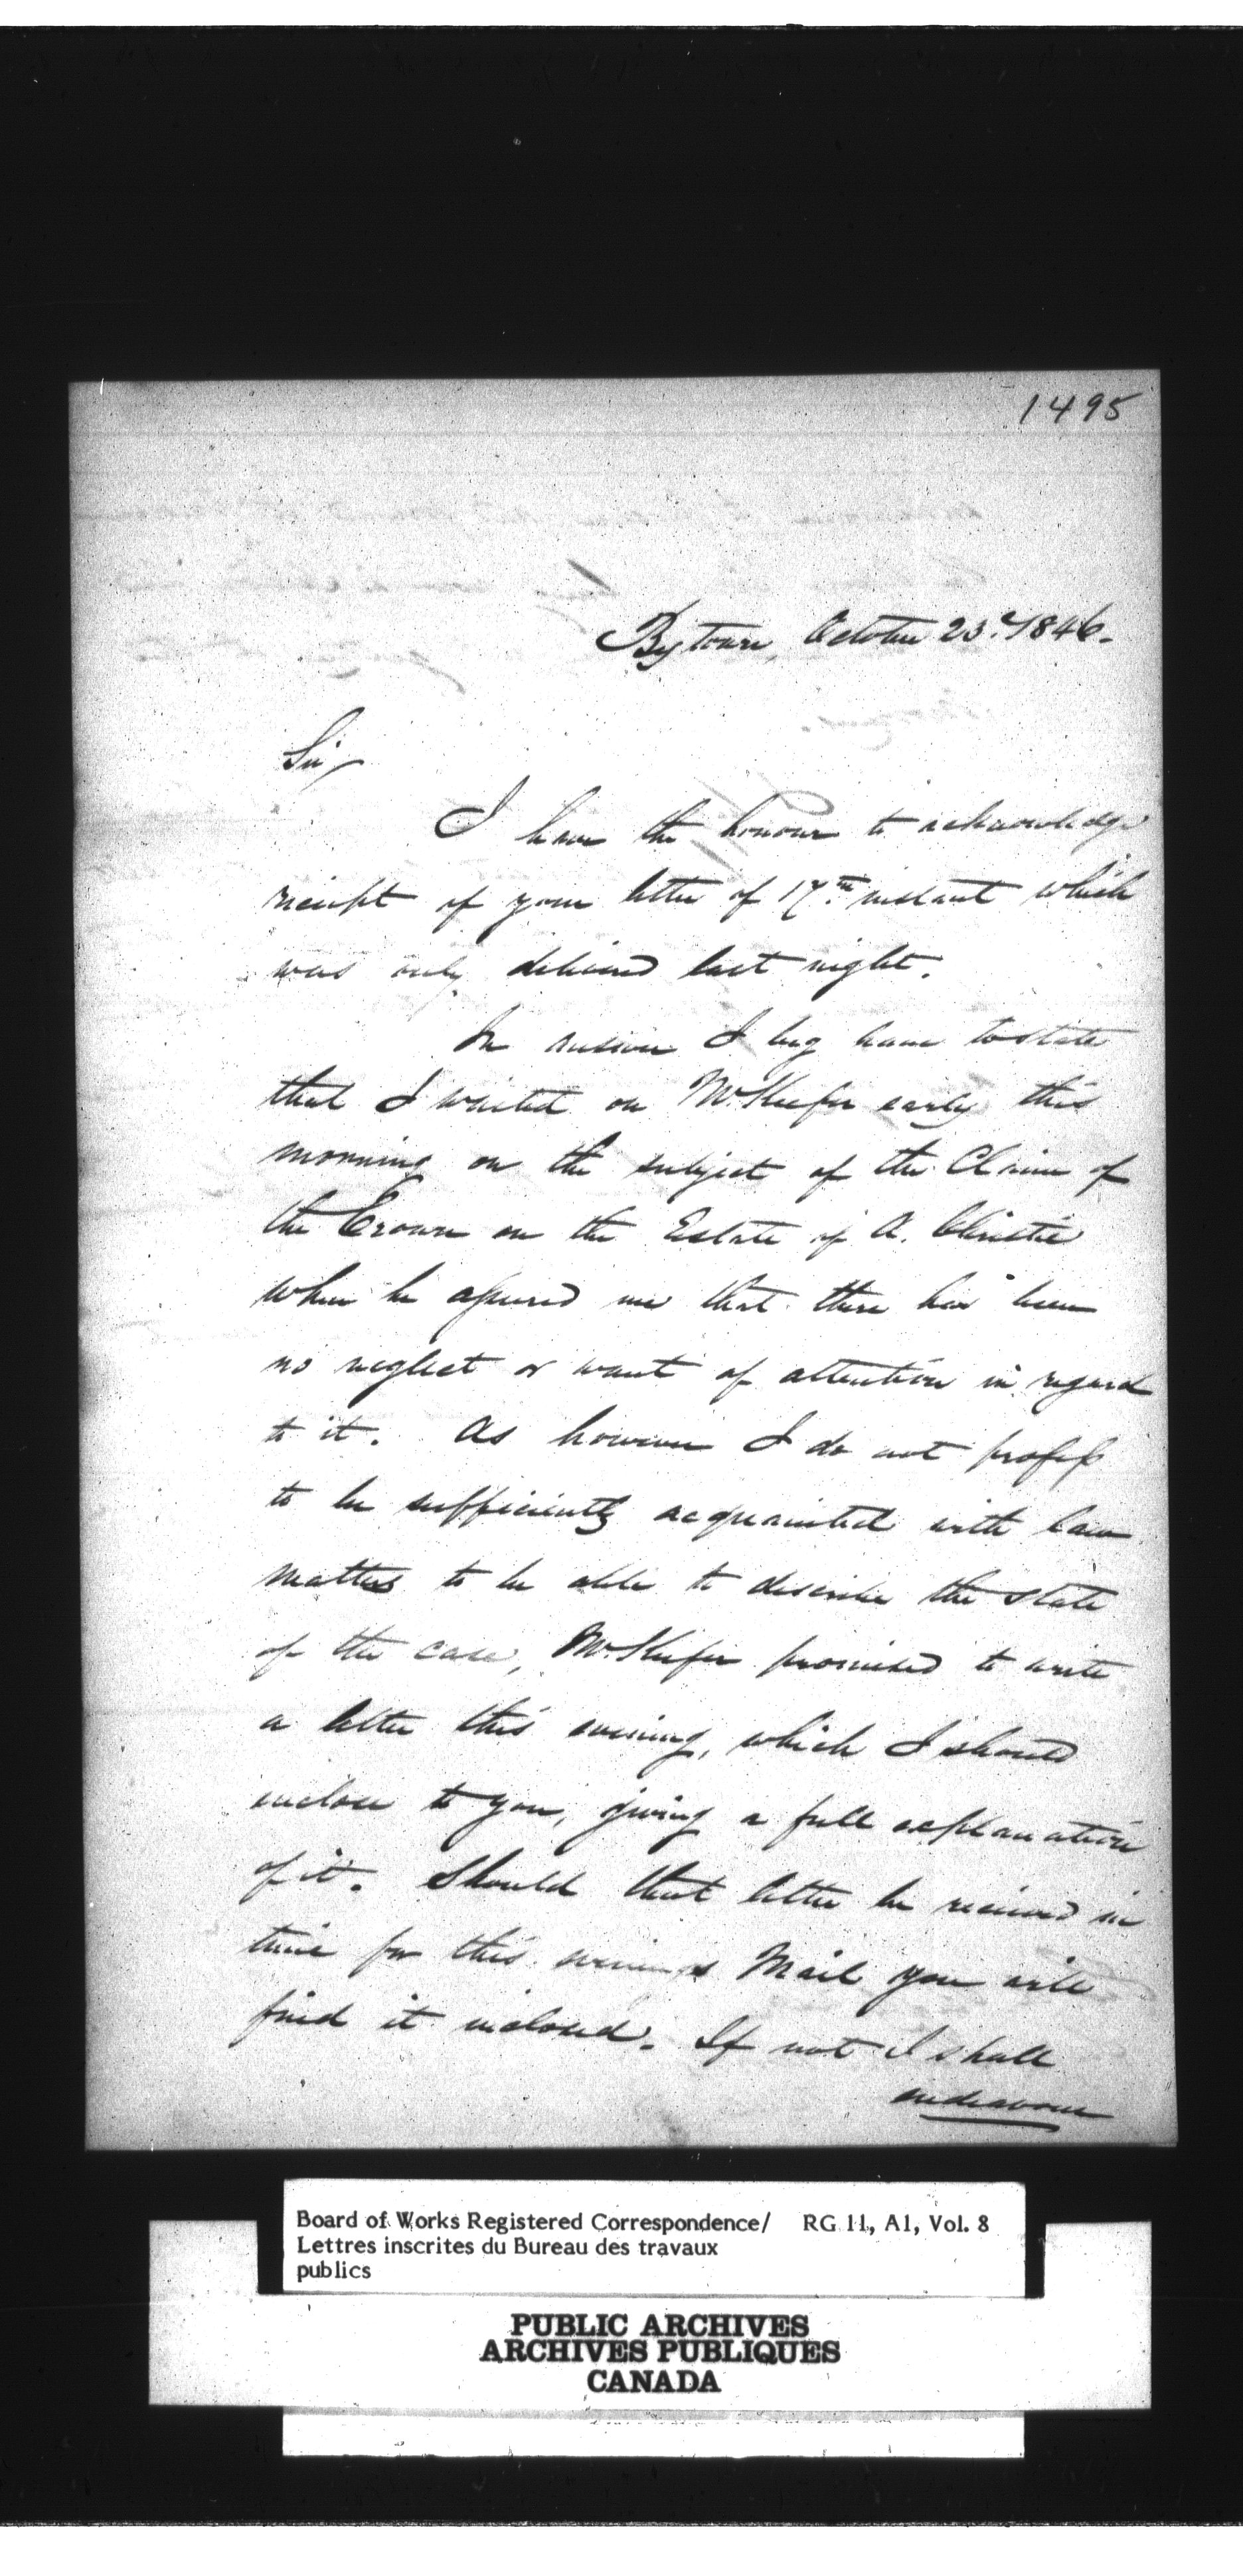 1495
Bytown, October 23.d 1846.
Sir,
I have the honour to acknowledge
receipt of your letter of 17.th instant which
was only delivered last night.
In answer I beg leave to state
that I waited on Mr. Keefer early this
morning on the subject of the Claim of
the Crown on the Estate of A. Christie
when he assured me that there has been
no neglect or want of attention in regard
to it. As however I do not profess
to be sufficiently acquainted with law
matters to be able to describe the state
of the case, Mr. Keefer promised to write
a letter this evening, which I should
enclose to you, giving a full explanation
of it. Should that letter be received in
time for this evenings Mail you will
find it inclosed. If not I shall
endeavour
Board of Works Registered Correspondence/ RG 11, A1, Vol. 8
Lettres inscrites du Bureau des travaux
publics
PUBLIC ARCHIVES
ARCHIVES PUBLIQUES
CANADA